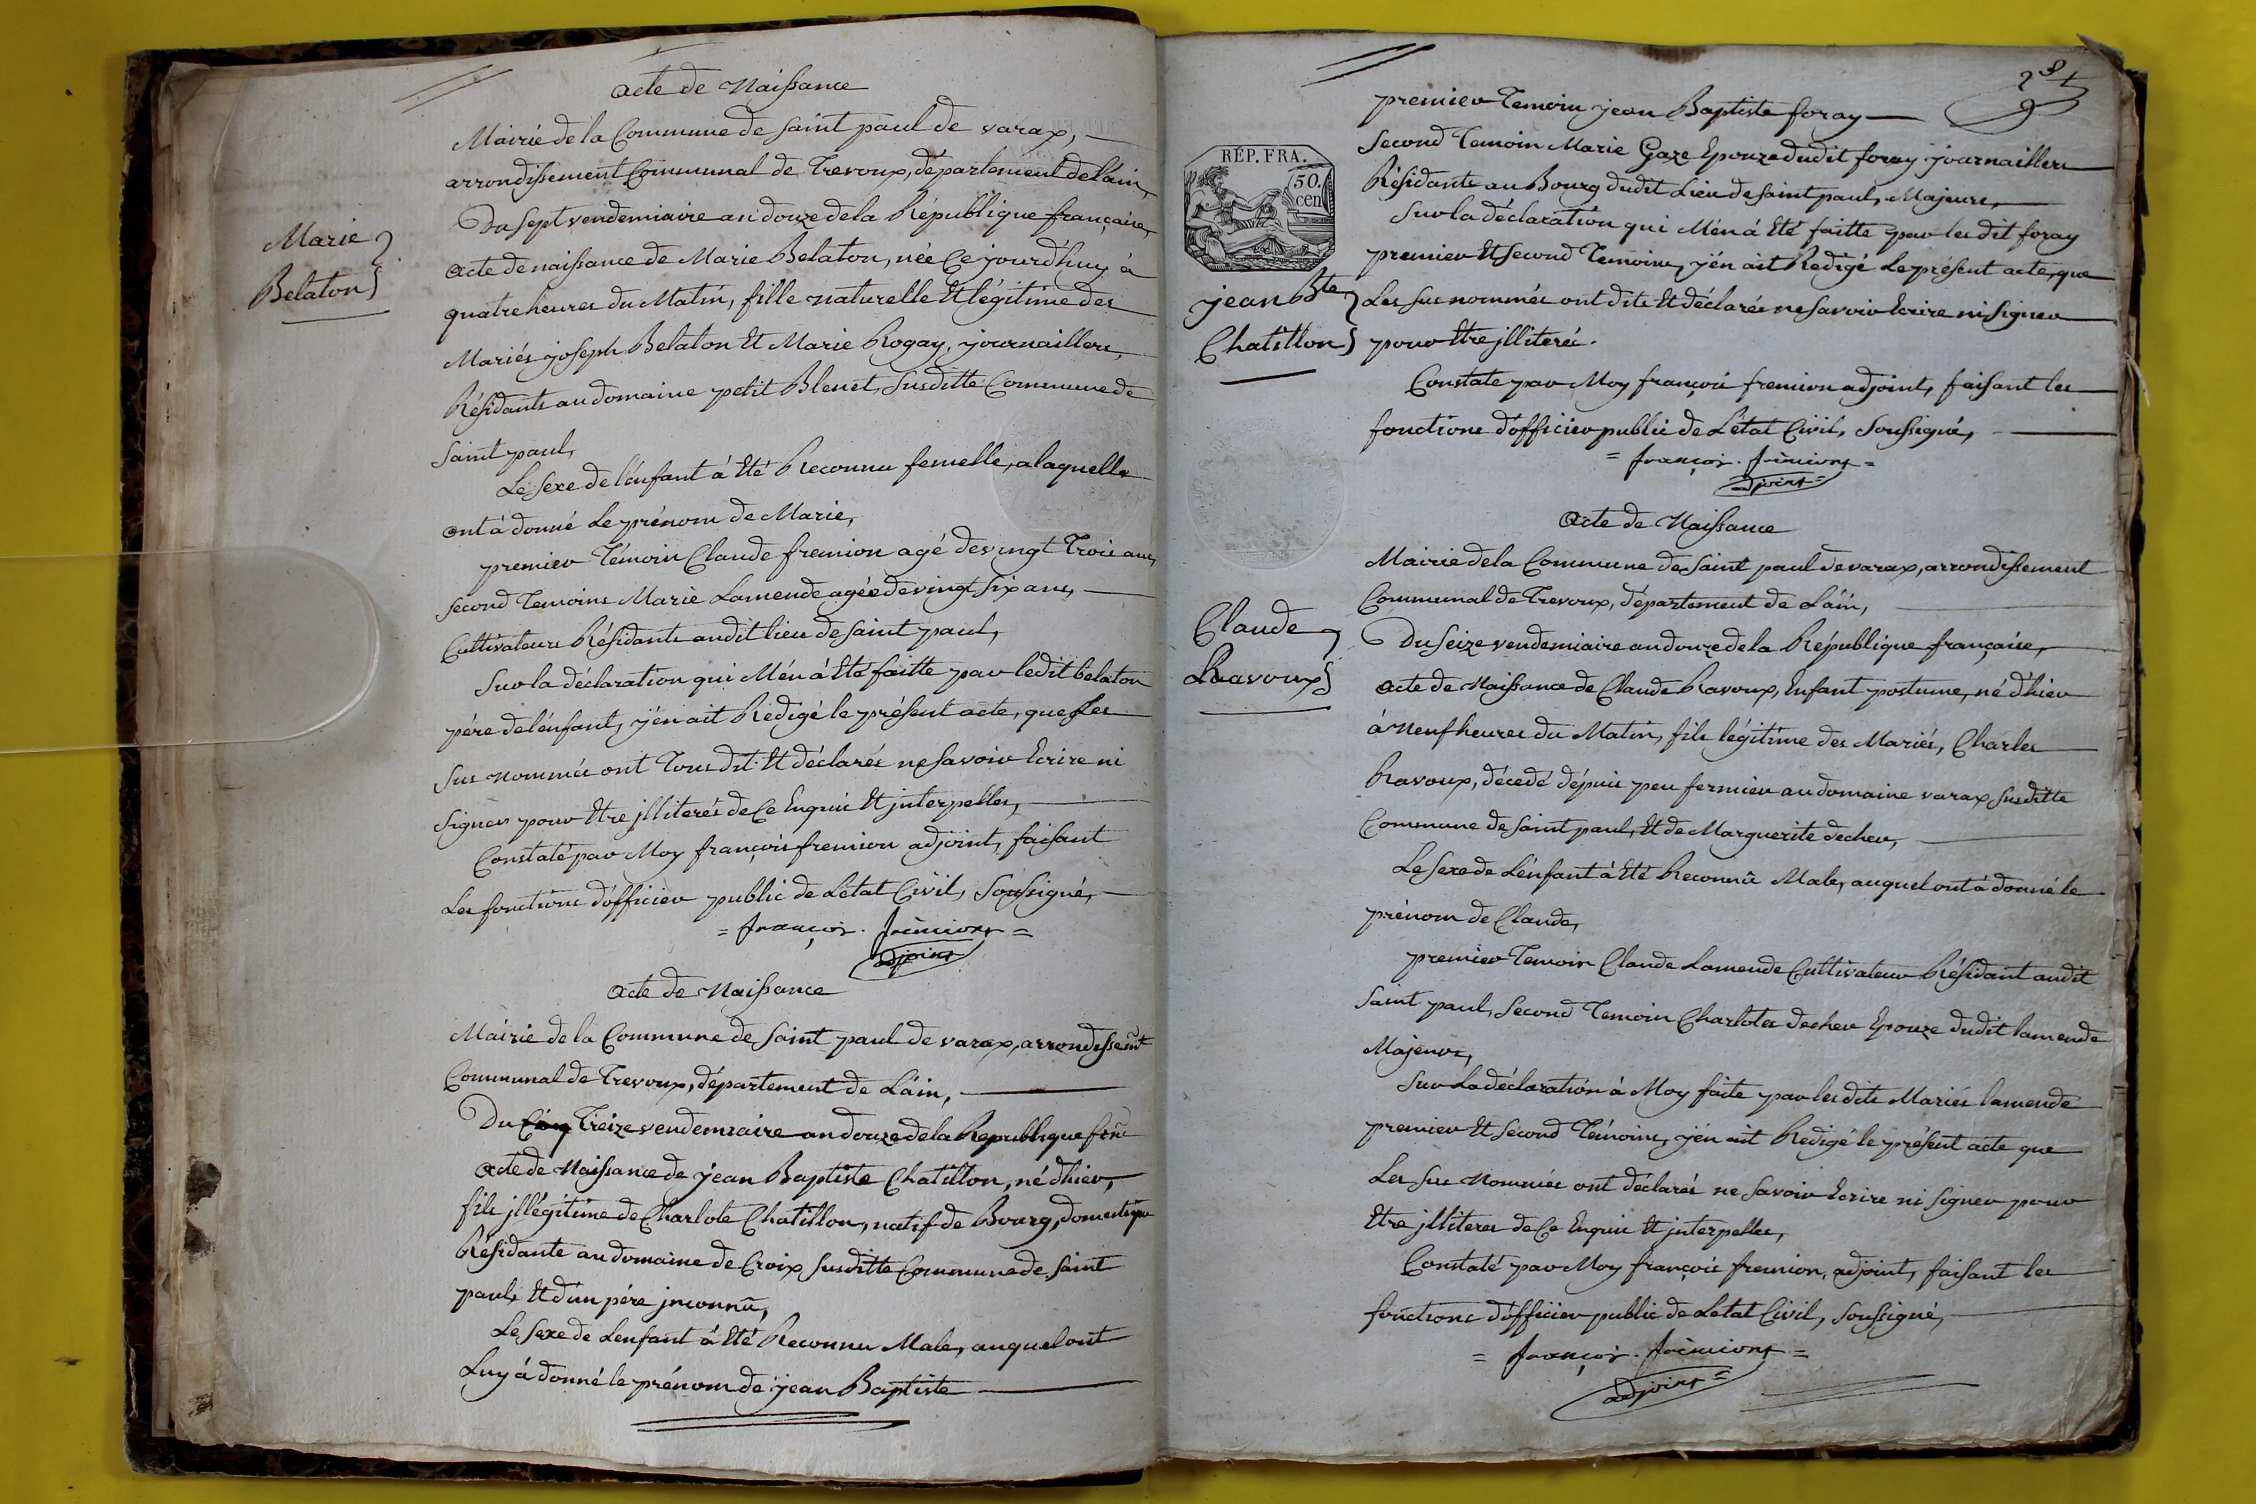 acte de Naissance
Mairie de la Commune de Saint paul de varax,
arrondissement Communal de Trevoux, département de Lain,
Du sept vendemiaire an douze de la République française,
Marie
Belaton
acte de naissance de Marie Belaton, née Ce jourdhuy à
quatre heures du Matin, fille naturelle Et légitime des
Mariés joseph Belaton Et Marie Rogay, journailliers,
Résidants au domaine petit Blenet, Susditte Commune de
Saint paul,
Le sexe de lénfant à Eté Reconnu femelle, a laquelle
ont à donné Le prénom de Marie,
premier Témoin Claude fremion agé de vingt Trois ans,
second Temoins Marie Lamende agée de vingt six ans,
Cultivateurs Résidants audit lieu de Saint paul,
Sur la déclaration qui Mén à Eté faitte par ledit belaton
pére de lénfant, j'én ait Redigé le présent acte, que Les
sus nommés ont Tous dit Et déclarés ne savoir Ecrire ni
signer pour Etre jlliterés de Ce Enquis Et jnterpelles,
Constaté par Moy françois fremion adjoint, faisant
Les fonctions dófficier public de Létat Civil, Soussigné,
= françois. frémions =
adjoint
acte de Naissance
Mairie de la Commune de Saint paul de varax, arrondissemt
Communal de Trevoux, département de Láin,
Du Treize vendemiaire an douze de la Republique
acte de Naissance de jean Baptiste Chatillon, né dhier,
fils jllégitime de Charlote Chatillon, natif de Bourg, domestique
Résidante au domaine de Croix susditte Commune de Saint
paul, Et dún pére jnconnû,
Le sexe de Lenfant á Eté Reconnu Male, auquel ont
Luy á donné le prénom de jean Baptiste
premier Temoin jean Baptiste foray
Second Temoin Marie Gaze Epouze dudit foray journailliers
Résidants au Bourg dudit Lieu de saint paul, Majeurs,
RÉP. FRA.
50.
cen
Sur la déclaration qui Mén á Eté faitte par les dit foray
premier Et second Temoins, j'én ait Redigé Le présent acte, que
jean Bte
Chatillon
Les sus nommés ont dits Et déclarés ne savoir Ecrire ni signer
pour Etre jlliterés.
Constate par Moy françois fremion adjoint, faisant les
fonctions dófficier public de Létat Civil, Soussigné,
= françois. frémions =
adjoint =
acte de Naissance
Mairie de la Commune de Saint paul de varax, arrondissement
Communal de Trevoux, département de Láin,
Claude
Ravoux
Du seize vendemiaire an douze de la République française,
acte de Naissance de Claude Ravoux, Enfant postume, né dhier
à Neuf heures du Matin, fils légitime des Mariés, Charles
Ravoux, décedé dépuis peu fermier au domaine varax susditte
Commune de Saint paul, Et de Marguerite decher,
Le sexe de Lénfant à Eté Reconnû Male, auquel ont à donné le
prénom de Claude,
premier Temoin Claude Lamende Cultivateur Résidant audit
Saint paul, Second Temoin Charlotes decher Epouze dudit lamende
Majeurs,
Sur La déclaratión à Moy faite par les dits Mariés lamende
premier Et Second Témoins, j'én ait Redigé le présent acte que
Les sus nommés ont déclarés ne savoir Ecrire ni signer pour
Etre jlliteres de Ce Enquis Et jnterpelles,
Constaté par Moy françois fremion, adjoint, faisant les
fonctions dófficier public de Letat Civil, soussigné,
= françois. frémions =
adjoint =